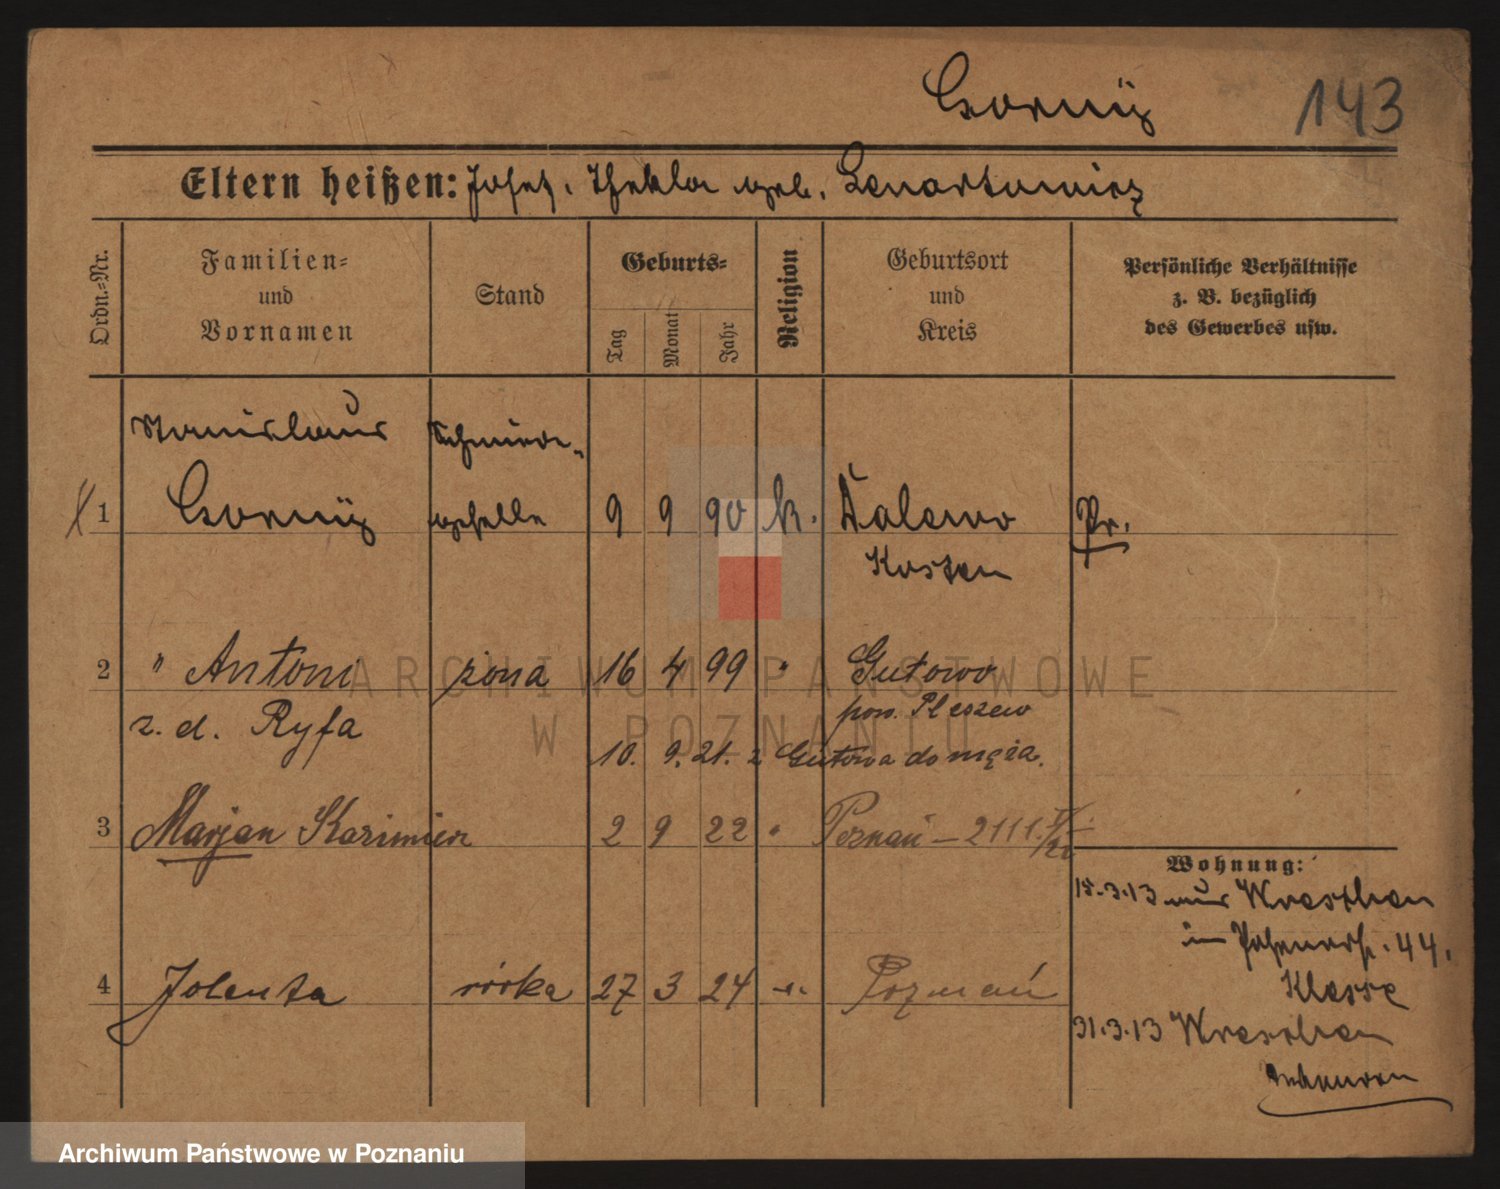 Gorny
143
Eltern heißen: Josef, Thekla geb. Lenartowicz
Ordn.=Nr.
Familien=
und
Vornamen
Stand
Geburts=
Tag
Monat
Jahr
Religion
Geburtsort
und
Kreis
Persönliche Verhältnisse
z. B. bezüglich
des Gewerbes usw.
Stanislaus Schmiede-
1 Gorny geselle 9 9 90 k. Dalewo Pr.
Kosten
2 " Antoni żona 16 4 99 " Gutowo
z. d. Ryfa pow. Pleszew
10. 9. 21. z Gutowa do męża.
3 Marjan Kazimierz 2 9 22 " Poznań – 2111
Wohnung:
15.3.13 aus Wreschen
im 44.
4 Jolenta córka 27 3 24 -"- Poznań
Klasse
31.3.13 Wreschen
ARCHIWUM PAŃSTWOWE
W POZNANIU
Archiwum Państwowe w Poznaniu